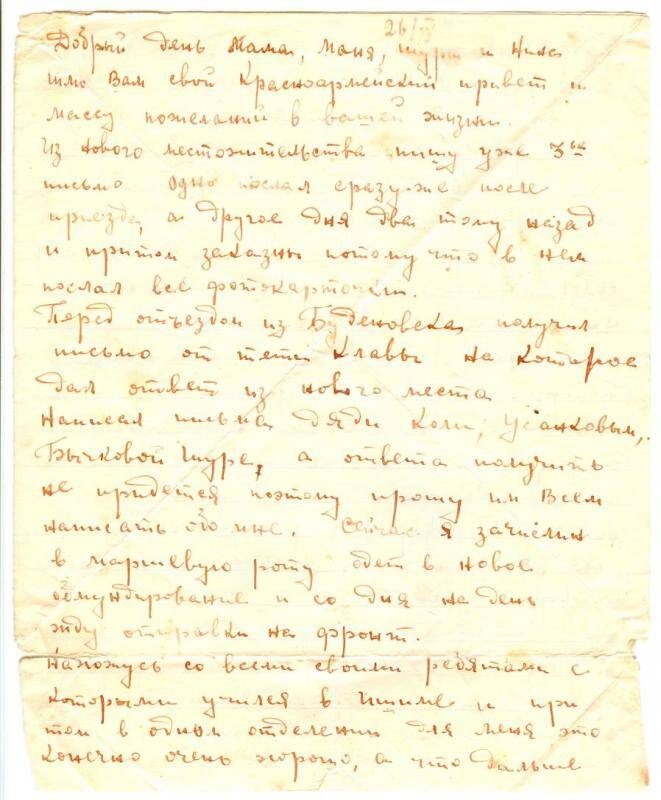 26/IV
Добрый день Мама, Маня, Шура и Нина
шлю Вам свой Красноармейский привет и
массу пожеланий в вашей жизни.
Из нового местожительства пишу уже 3ье
письмо одно послал сразу-же после
приезда, а другое дня два тому назад
и притом заказны потому что в нем
послал все фотокарточки.
Перед отъездом из Буденовска получил
письмо от тети Клавы на которое
дал ответ из нового места
Написал письма дяди Коли, Усанковым,
Бычковой Шуре, а ответа получить
не придется поэтому прошу им Всем
написать обо мне. Сейчас я зачислин
в маршевую роту одет в новое
обмундирование и со дня на день
жду отправки на фронт.
Нахожусь со всеми своими ребятами с
которыми учился в Ишиме и при
том в одном отделении для меня это
конечно очень хорошо, а что дальше